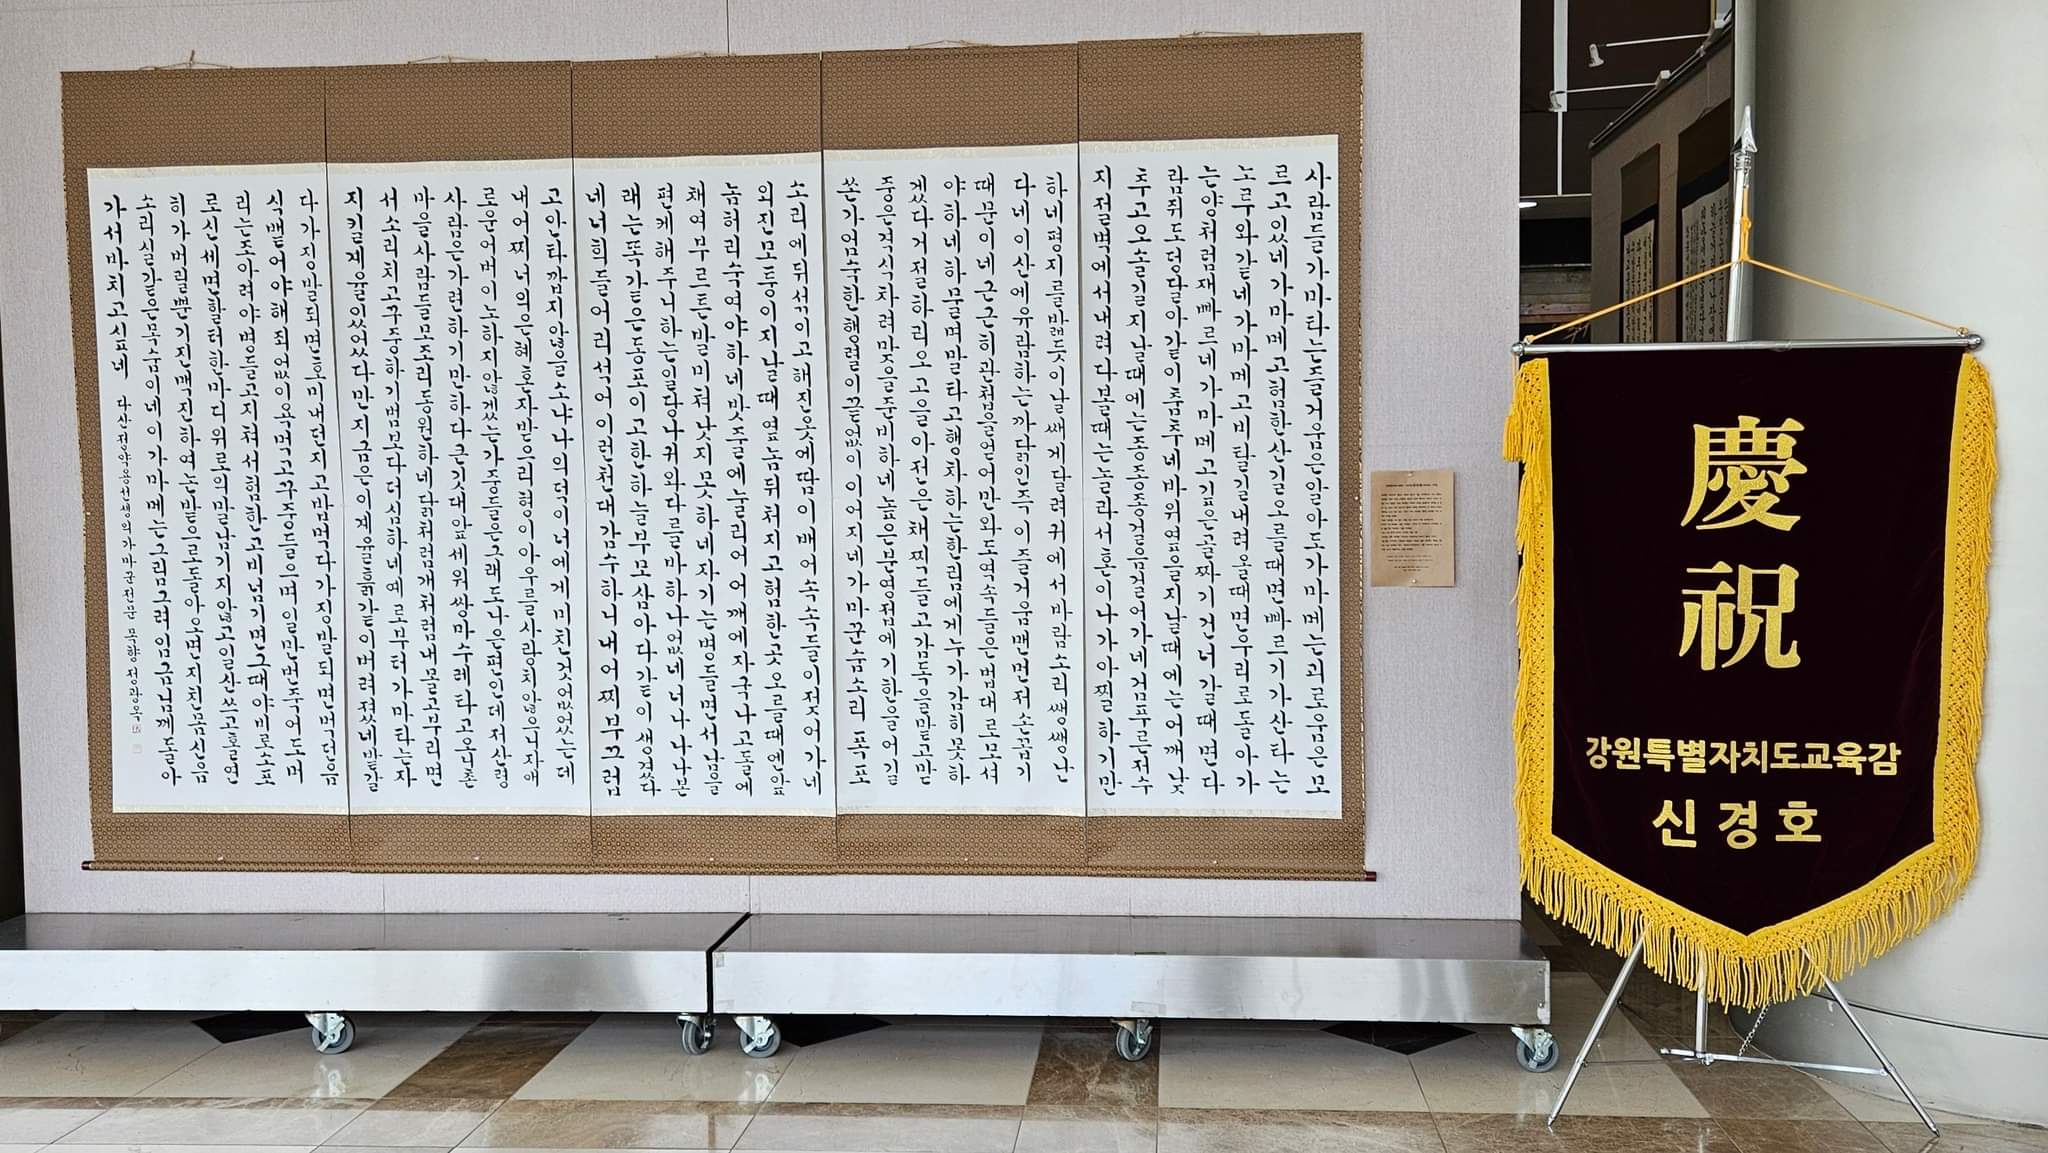 사람들가마타는즐거움은알아도가마메는괴로움은모
르고있네가마메고험한산길오를때면빠르기가산타는
노루와같네가마메고비탈길내려올때면우리로돌아가
는양처럼재빠르네가마메고깊은골짜기건너갈때면다
람쥐도덩달아같이춤추네바위옆을지날때에는어깨낮
추고오솔길지날때에는종종걸음걸어가네검푸른저수
지절벽에서내려다볼때는놀라서혼이나가아찔하기만
하네평지를밟듯이날쌔게달려귀에서바람소리쌩쌩난
다네이산에유람하는까닭인즉이즐거움맨먼저손꼽기
때문이네근근히관첩을얻어만와도역속들은법대로모셔
야하네하물며말타고행차하는한림에게누가감히못하
겠다거절하리오고을아전은채찍들고감독을맡고만
중은격식차려맞을준비하네높은분영접에기한을어길
쏜가엄숙한행렬이끝없이이어지네가마꾼숨소리폭포
소리에뒤섞이고해진옷에땀이배어속속들이젖어가네
외진모퉁이지날때옆놈뒤처지고험한곳오를때엔앞
놈허리숙여야하네밧줄에눌리어어깨에자국나고돌에
채여부르튼발미쳐낫지못하네자기는병들면서남을
편케해주니하는일당나귀와다를바하나없네너나나나본
래는똑같은동포이고한하늘부모삼아다같이생겼다
네너희들어리석어이런천대감수하니내어찌부끄럽
고안타깝지않을소냐나의덕이너에게미친것없었는데
내어찌너의은혜혼자받으리형이아우를사랑치않으니자애
로운어머이노하지않겠는가중들은그래도나은편인데저산령
사람은가련하기만하다큰깃대앞세워쌍마수레타고오니촌
마을사람들모조리동원하네닭처럼개처럼내몰고부리면
서소리치고꾸중하기범보다더심하네예로부터가마타는자
지킬계율있었다만지금은이계율흙같이버려졌네밭갈
다가징발되면호미내던지고밥먹다가징발되면먹던음
식뱉어야해죄없이욕먹고꾸중들으며일만번죽어도머
리는조아려야병들고지쳐서험한고비넘기면그때야비로소포
로신세면할터한마디위로의말남기지않고일산쓰고훌연
히가버릴뿐기진맥진하여논밭으로돌아오면지친몸신음
소리실낱같은목숨이네이가마메는그림그려임금님께돌아
가서바치고싶네 다산정약용선생의가마꾼전문 목향정광옥
慶祝
강원특별자치도교육감
신경호